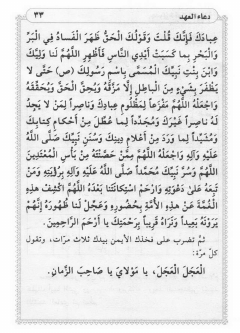 دعاء العهد ٣٣
عِبادَكَ فَإِنَّكَ قُلْتَ وَقَوْلُكَ الْحَقُّ ظَهَرَ الْفَسادُ فِي الْبَرِّ
وَالْبَحْرِ بِما كَسَبَتْ أَيْدِي النَّاسِ فَأَظْهِرِ اللَّهُمَّ لَنا وَلِيَّكَ
وَابْنَ بِنْتِ نَبِيِّكَ الْمُسَمَّى بِاسْمِ رَسُولِكَ (ص) حَتَّى لا
يَظْفَرَ بِشَيْءٍ مِنَ الْباطِلِ إِلَّا مَزَّقَهُ وَيُحِقَّ الْحَقَّ وَيُحَقِّقَهُ
وَاجْعَلْهُ اللَّهُمَّ مَفْزَعاً لِمَظْلُومِ عِبادِكَ وَناصِراً لِمَنْ لا يَجِدُ
لَهُ ناصِراً غَيْرَكَ وَمُجَدِّداً لِما عُطِّلَ مِنْ أَحْكامِ كِتابِكَ
وَمُشَيِّداً لِما وَرَدَ مِنْ أَعْلامِ دِينِكَ وَسُنَنِ نَبِيِّكَ صَلَّى اللهُ
عَلَيْهِ وَآلِهِ وَاجْعَلْهُ اللَّهُمَّ مِمَّنْ حَصَّنْتَهُ مِنْ بَأْسِ الْمُعْتَدِينَ
اللَّهُمَّ وَسُرَّ نَبِيَّكَ مُحَمَّداً صَلَّى اللهُ عَلَيْهِ وَآلِهِ بِرُؤْيَتِهِ وَمَنْ
تَبِعَهُ عَلى دَعْوَتِهِ وَارْحَمِ اسْتِكانَتَنا بَعْدَهُ اللَّهُمَّ اكْشِفْ هذِهِ
الْغُمَّةَ عَنْ هذِهِ الْأُمَّةِ بِحُضُورِهِ وَعَجِّلْ لَنا ظُهُورَهُ إِنَّهُمْ
يَرَوْنَهُ بَعِيداً وَنَراهُ قَرِيباً بِرَحْمَتِكَ يا أَرْحَمَ الرَّاحِمِينَ.
ثمّ تضرب على فخذك الأيمن بيدك ثلاث مرّات، وتقول
كلّ مرّة:
الْعَجَلَ الْعَجَلَ، يا مَوْلايَ يا صاحِبَ الزَّمانِ.